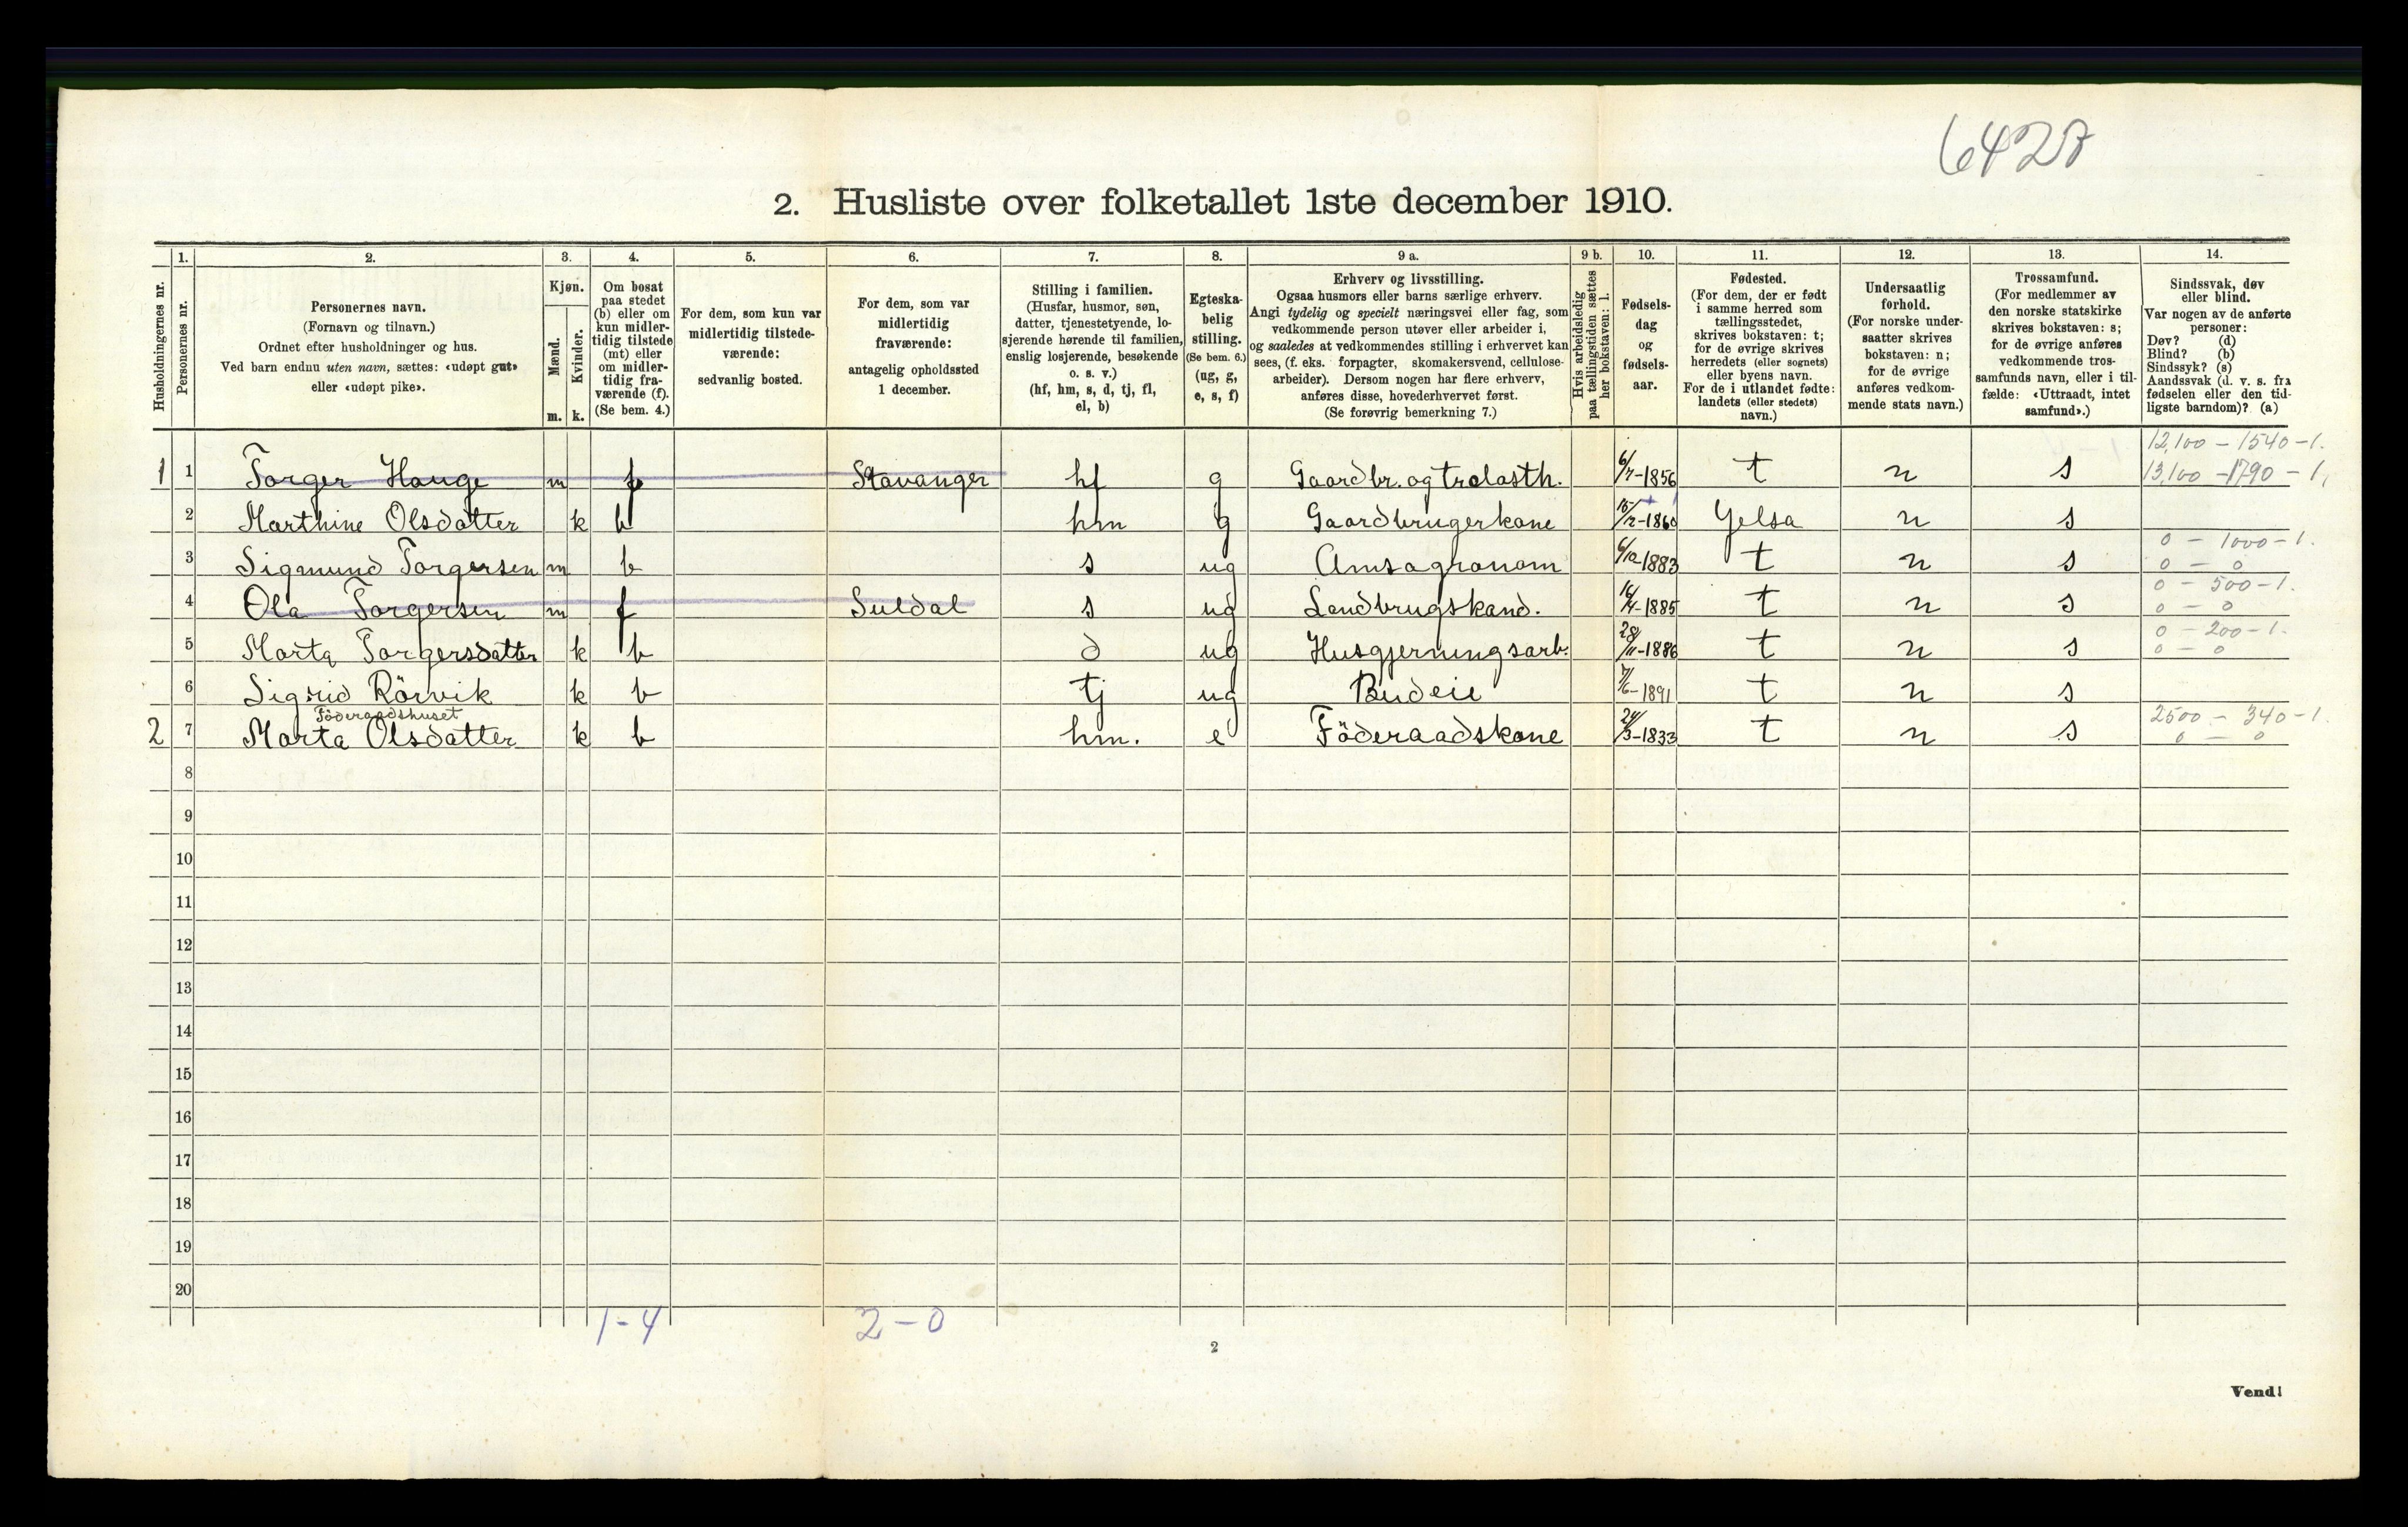 6428
2. Husliste over folketallet 1ste december 1910.
1. 2. 3. 4. 5. 6. 7. 8. 9 a. 9 b. 10. 11. 12. 13. 14.
Husholdningernes nr.
Personernes nr.
Personernes navn.
(Fornavn og tilnavn.)
Ordnet efter husholdninger og hus.
Ved barn endnu uten navn, sættes: «udøpt gut»
eller «udøpt pike».
Kjøn.
Mænd.
m.
Kvinder.
k.
Om bosat
paa stedet
(b) eller om
kun midler-
tidig tilstede
(mt) eller
om midler-
tidig fra-
værende (f).
(Se bem. 4.)
For dem, som kun var
midlertidig tilstede-
værende:
sedvanlig bosted.
For dem, som var
midlertidig
fraværende:
antagelig opholdssted
1 december.
Stilling i familien.
(Husfar, husmor, søn,
datter, tjenestetyende, lo-
sjerende hørende til familien,
enslig losjerende, besøkende
o. s. v.)
(hf, hm, s, d, tj, fl,
el, b)
Egteska-
belig
stilling.
(Se bem. 6.)
(ug, g,
e, s, f)
Erhverv og livsstilling.
Ogsaa husmors eller barns særlige erhverv.
Angi tydelig og specielt næringsvei eller fag, som
vedkommende person utøver eller arbeider i,
og saaledes at vedkommendes stilling i erhvervet kan
sees, (f. eks. forpagter, skomakersvend, cellulose-
arbeider). Dersom nogen har flere erhverv,
anføres disse, hovederhvervet først.
(Se forøvrig bemerkning 7.)
Hvis arbeidsledig
paa tællingstiden sættes
her bokstaven: l.
Fødsels-
dag
og
fødsels-
aar.
Fødested.
(For dem, der er født
i samme herred som
tællingsstedet,
skrives bokstaven: t;
for de øvrige skrives
herredets (eller sognets)
eller byens navn.
For de i utlandet fødte:
landets (eller stedets)
navn.)
Undersaatlig
forhold.
(For norske under-
saatter skrives
bokstaven: n;
for de øvrige
anføres vedkom-
mende stats navn.)
Trossamfund.
(For medlemmer av
den norske statskirke
skrives bokstaven: s;
for de øvrige anføres
vedkommende tros-
samfunds navn, eller i til-
fælde: «Uttraadt, intet
samfund».)
Sindssvak, døv
eller blind.
Var nogen av de anførte
personer:
Døv? (d)
Blind? (b)
Sindssyk? (s)
Aandssvak (d. v. s. fra
fødselen eller den tid-
ligste barndom)? (a)
12,100 – 1540 – 1.
1 1 Torger Hauge m f Stavanger hf g Gaardbr. og trelasth. 6/7-1856 t n s 13,100 – 1790 – 1,
2 Marthine Olsdatter k b hm g Gaardbrugerkone 15/12-1860 Jelsa n s
0 – 1000 – 1.
3 Sigmund Torgersen m b s ug Amsagronom 6/10-1883 t n s 0 – 0
0 – 500 – 1.
4 Ola Torgersen m f Suldal s ug Landbrugskand. 16/4-1885 t n s 0 – 0
0 – 200 – 1.
5 Marta Torgersdatter k b d ug Husgjerningsarb. 28/11-1886 t n s 0 – 0
6 Sigrid Rörvik k b tj ug Budeie 7/6-1891 t n s
Föderaadshuset
2500 – 340 – 1.
2 7 Marta Olsdatter k b hm. e Föderaadskone 24/3-1833 t n s 0 – 0
8
9
10
11
12
13
14
15
16
17
18
19
20
1-4 2-0
2
Vend!